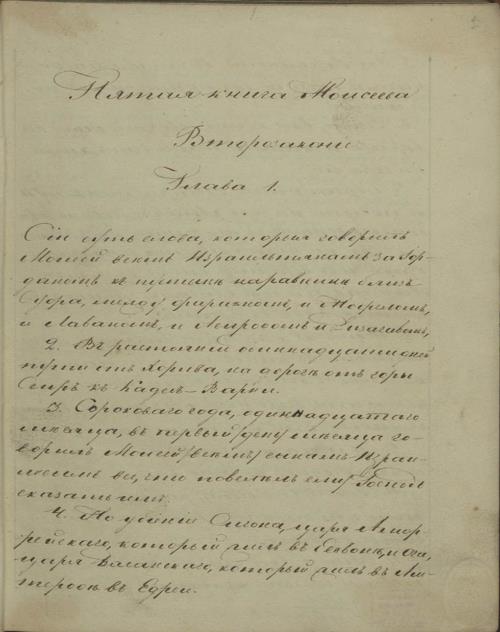 Пятая книга Моисеева
Второзаконіе
Глава 1.
Сіи суть слова, которыя говорилъ
Моисей всемъ Израильтянамъ за Іор-
даномъ въ пустынѣ на равнинѣ близъ
Суфа, между Фараномъ, и Тофеломъ,
и Лаваномъ, и Асирофомъ и Дизагавомъ,
2. Въ разстояніи одиннадцати дней
пути отъ Хорива, на дорогѣ отъ горы
Сеиръ къ Кадес-Варни.
3. Сороковаго года, одиннадцатаго
мѣсяца, въ первый /день/ мѣсяца го-
ворилъ Моисей /всемъ/ сынамъ Изра-
илевымъ все, что повелѣлъ ему Господь
сказать имъ.
4. По убіеніи Сигона, царя Амор-
рейскаго, который жилъ въ Есевонѣ, и Ога,
царя Васанскаго, который жилъ въ Ас-
тероѳѣ въ Едреи.